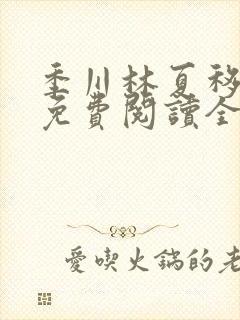 季川林夏移
免費閱讀全
愛喫火鍋的老